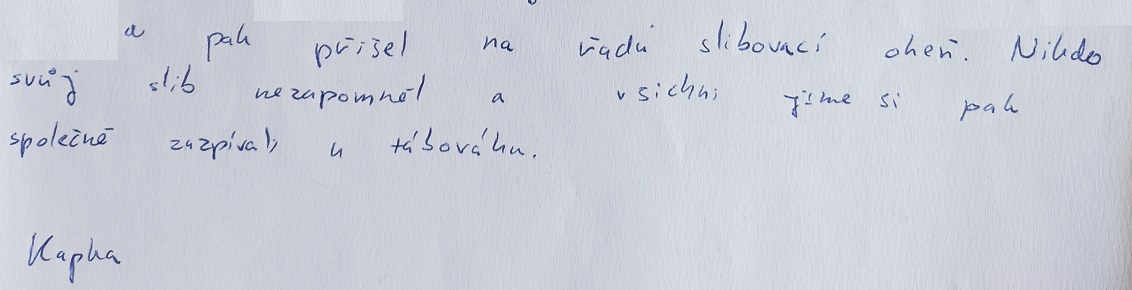 a pak přišel na řadu slibovací oheň. Nikdo
svůj slib nezapomněl a všichni jsme si pak
společně zazpívali u táboráku.
Kapka